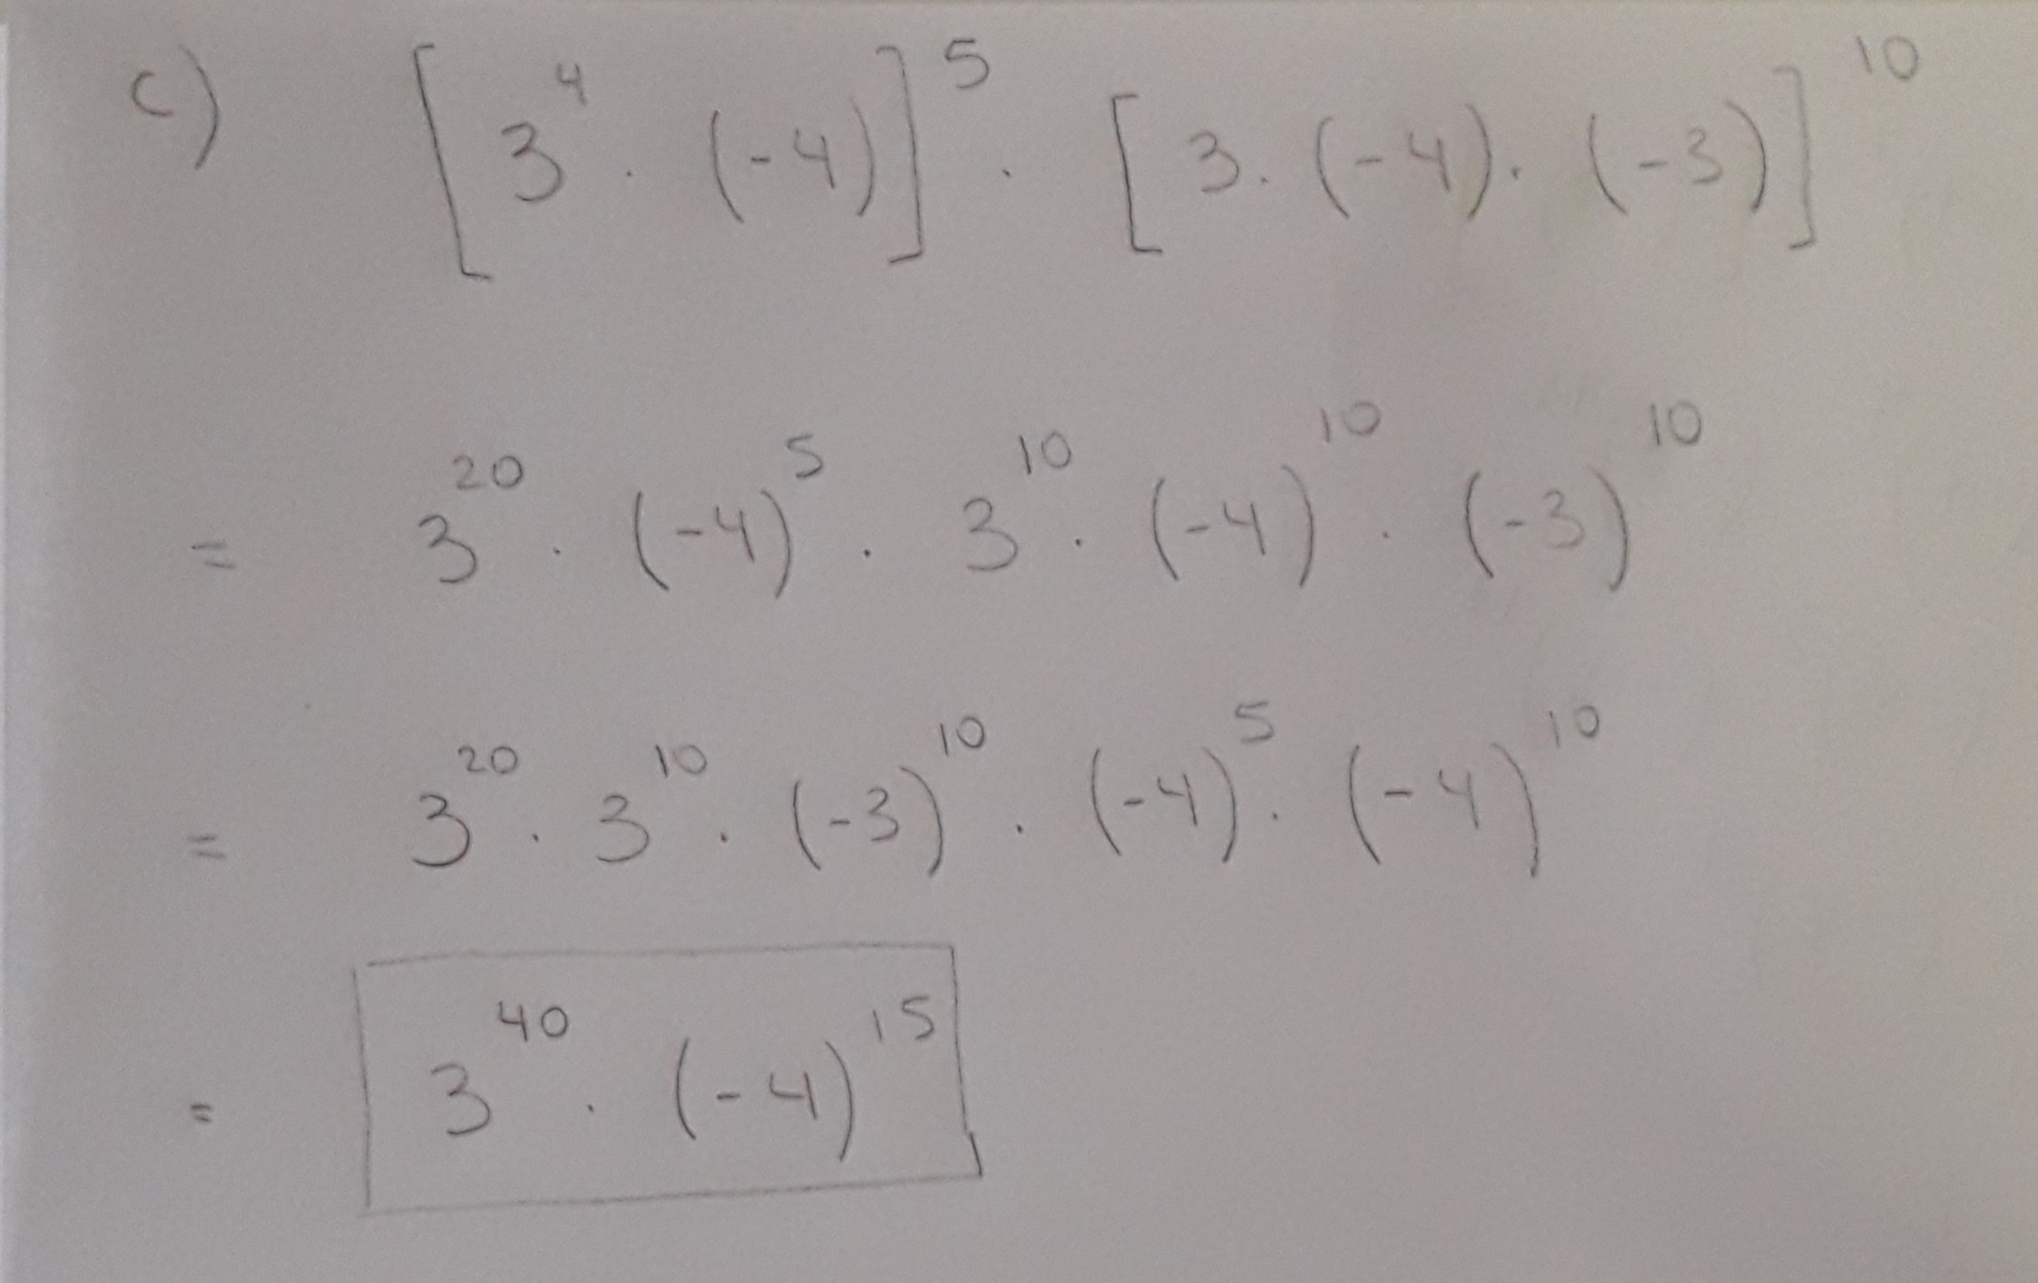 c) [3⁴ . (-4)]⁵ . [3 . (-4) . (-3)]¹⁰
= 3²⁰ . (-4)⁵ . 3¹⁰ . (-4)¹⁰ . (-3)¹⁰
= 3²⁰ . 3¹⁰ . (-3)¹⁰ . (-4)⁵ . (-4)¹⁰
= 3⁴⁰ . (-4)¹⁵